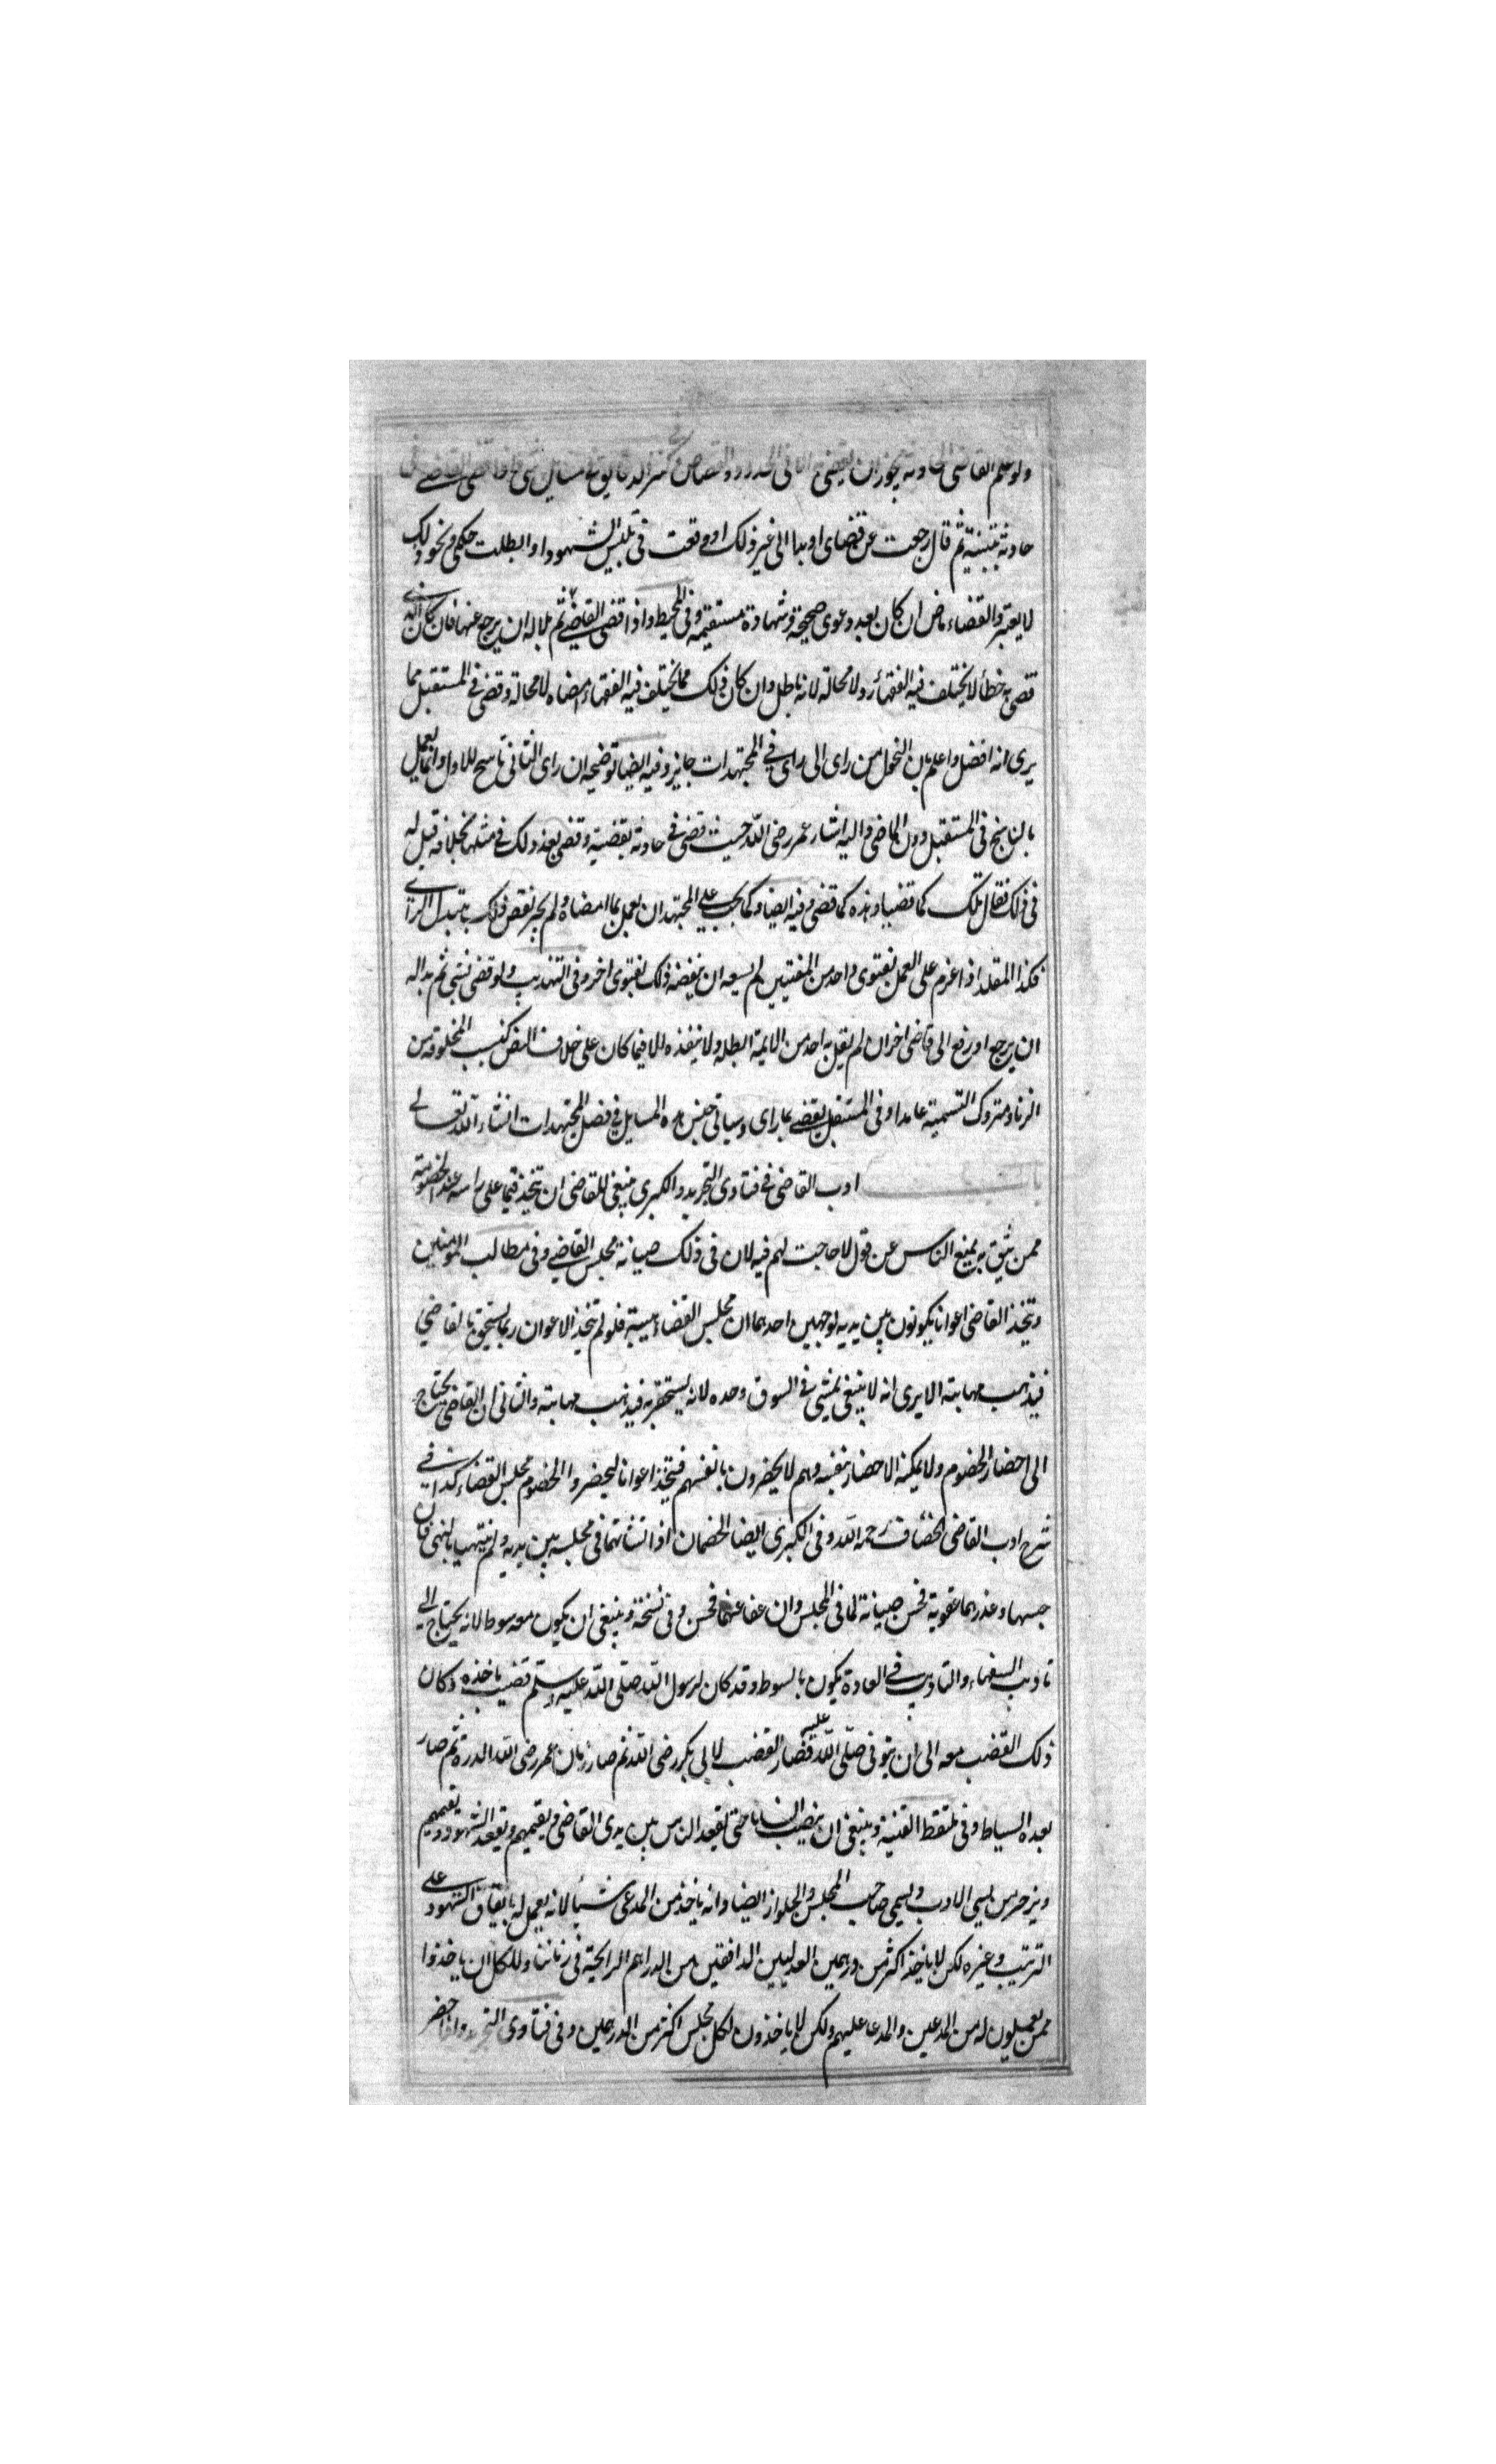 ولو علم القاضى الحادثة يجوز ان يقضى به الا فى الحدود والقصاص كنز الدقايق فى مسايل شتى اذا قضى القاضى فى
حادثة ببينة ثم قال رجعت عن قضاى او بدا لى غير ذلك او وقعت فى تلبيس الشهود او ابطلت حكمى ونحو ذلك
لا يعتبر والقضاء ماض ان كان بعد دعوى صحيحة وشهادة مستقيمة وفى المحيط واذا قضى القاضى ثم بدا له ان يرجع عنها فان كان الذى
قضى به خطأ لا يختلف فيه الفقهاء رد لا محالة لانه باطل وان كان ذلك مما يختلف فيه الفقهاء امضاه لا محالة وقضى فى المستقبل مما
يرى انه افضل واعلم بان التحول من راى الى راى فى المجتهدات جايز وفيه ايضا توضيحه ان راى الثانى ناسخ للاول وانما يعمل
بالناسخ فى المستقبل دون الماضى واليه اشار عمر رضى الله حيث قضى فى حادثة بقضية وقضى بعد ذلك فى مثلها بخلافه قيل له
فى ذلك فقال تلك كما قضينا وهذه كما قضى وفيه ايضا وكما يجب على المجتهد ان يعمل بما امضاه ولم يجز نقض ذلك بتبدل الراى
فكذا المقلد اذا عزم على العمل بفتوى واحد من المفتيين لم يسعه ان ينقضه ذلك بفتوى اخر وفى التهذيب ولو قضى بشى ثم بدا له
ان يرجع او رفع الى قاضى اخر ان لم يقل به احد من الايمة ابطله ولا ينفذه الا فيما كان على خلاف النص كبنت المخلوقة من
الزنا ومتروك التسمية عامدا وفى المستقبل يقضى بما راى وسياتى جنس هذه المسايل فى فصل المجتهدات انشاء الله تعالى
ادب القاضى فى فتاوى التجريد والكبرى ينبغى للقاضى ان يتخذ قيما على راسه عند الخصومة
ممن يثق به يمنع الناس عن قول لا حاجت لهم فيه لان فى ذلك صيانة مجلس القاضى وفى مطالب المومنين
ويتخذ القاضى اعوانا يكونون بين يديه لوجهين احدهما ان مجلس القضاء هيبة فلو لم يتخذ الاعوان ربما يستحق بالقاضى
فيذهب مهابته الا يرى انه لا ينبغى يمشى فى السوق وحده لانه يستحقر به فيذهب مهابته والثانى ان القاضى يحتاج
الى احضار الخصوم ولا يمكنه الاحضار بنفسه وهم لا يحضرون بانفسهم فيتخذ اعوانا ليحضروا الخصوم مجلس القضاء كذا فى
شرح ادب القاضى لخصاف رحمه الله وفى الكبرى ايضا الخصمان اذا تشاتما فى مجلسه بين يديه ولم ينتهيا بالنهى فان
حبسهما وعذرهما عقوبة فحسن صيانة لما فى المجلس وان عفا عنهما فحسن وفى نسخة وينبغى ان يكون معه سوط لانه يحتاج الى
تاديب السفهاء والتاديب فى العادة يكون بالسوط وقد كان لرسول الله صلى الله عليه وسلم قضيب ياخذه وكان
ذلك القضب معه الى ان يتوفى صلى الله عليه فصار القضب لابى بكر رضى الله ثم صار زمان عمر رضى الله الدرة ثم صار
بعده السياط وفى ملتقط القنية وينبغى ان ينصب انسانا حتى يقعد الناس بين يدى القاضى ويقيمهم ويقعد الشهود ويقيمهم
ويزجر من يسى الادب ويسمى صاحب المجلس والجلواز ايضا وانه ياخذ من المدعى شيأ لانه يعمل له باتقاف الشهود على
الترتيب وغيره لكن لا ياخذ اكثر من درهمين العدليين الدافقين من الدراهم الرايجة فى زماننا وللكل ان ياخذوا
ممن يعملون له من المدعين والمدعا عليهم ولكن لا ياخذون لكل مجلس اكثر من الدرهمين وفى فتاوى التجريد واذا حضر